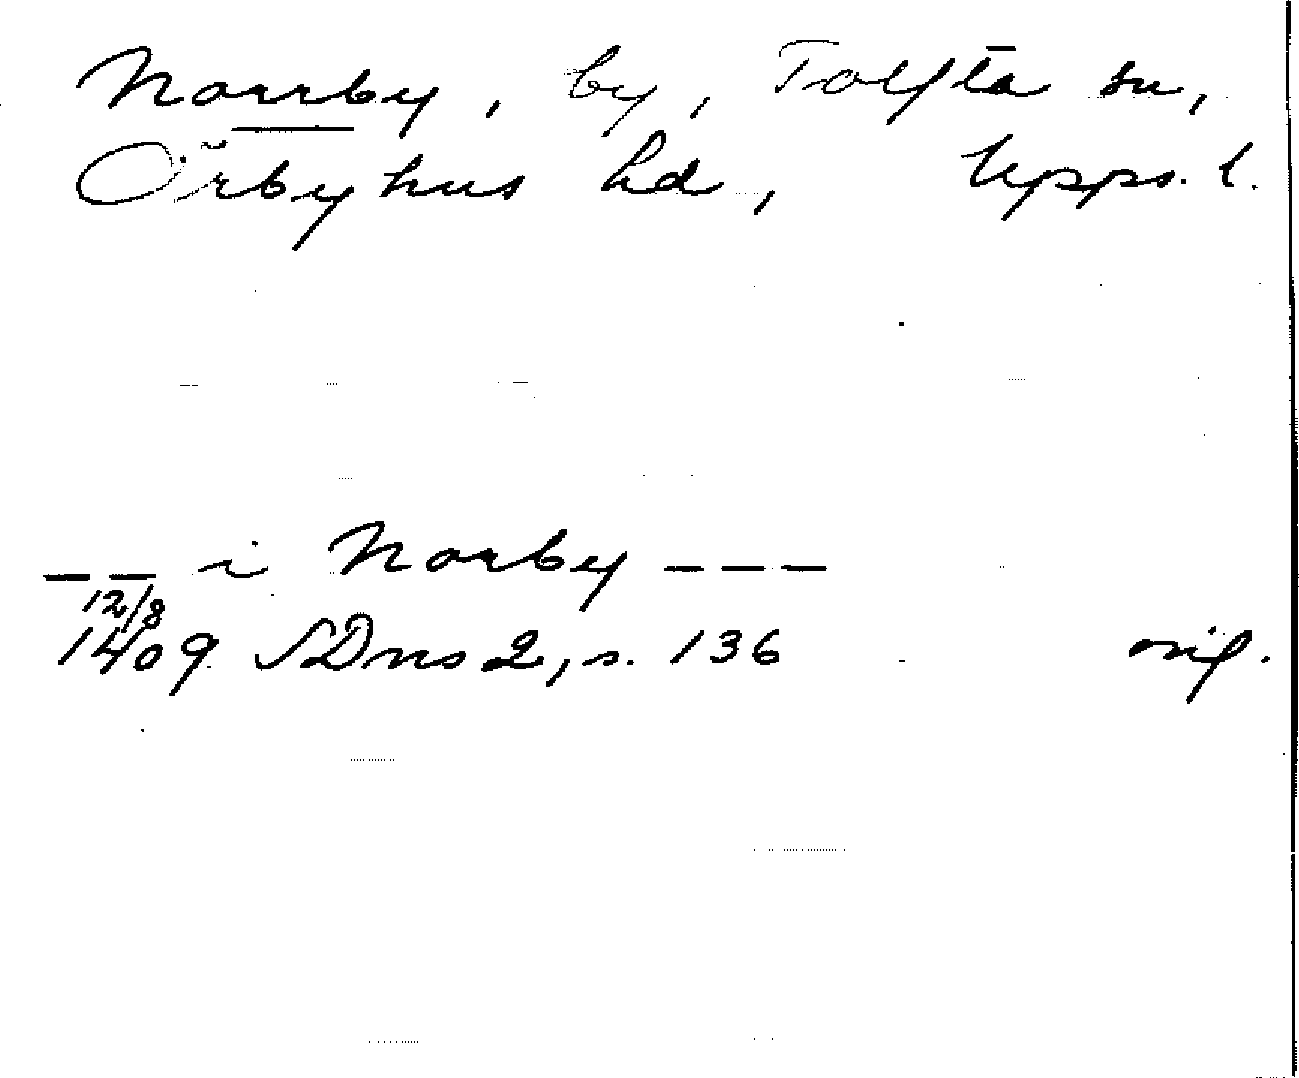 Norrby, by, Tolfta sn,
Örbyhus hd, Upps. l.
– – i Norby – – –
12/8
1409 SDns 2, s. 136 orig.